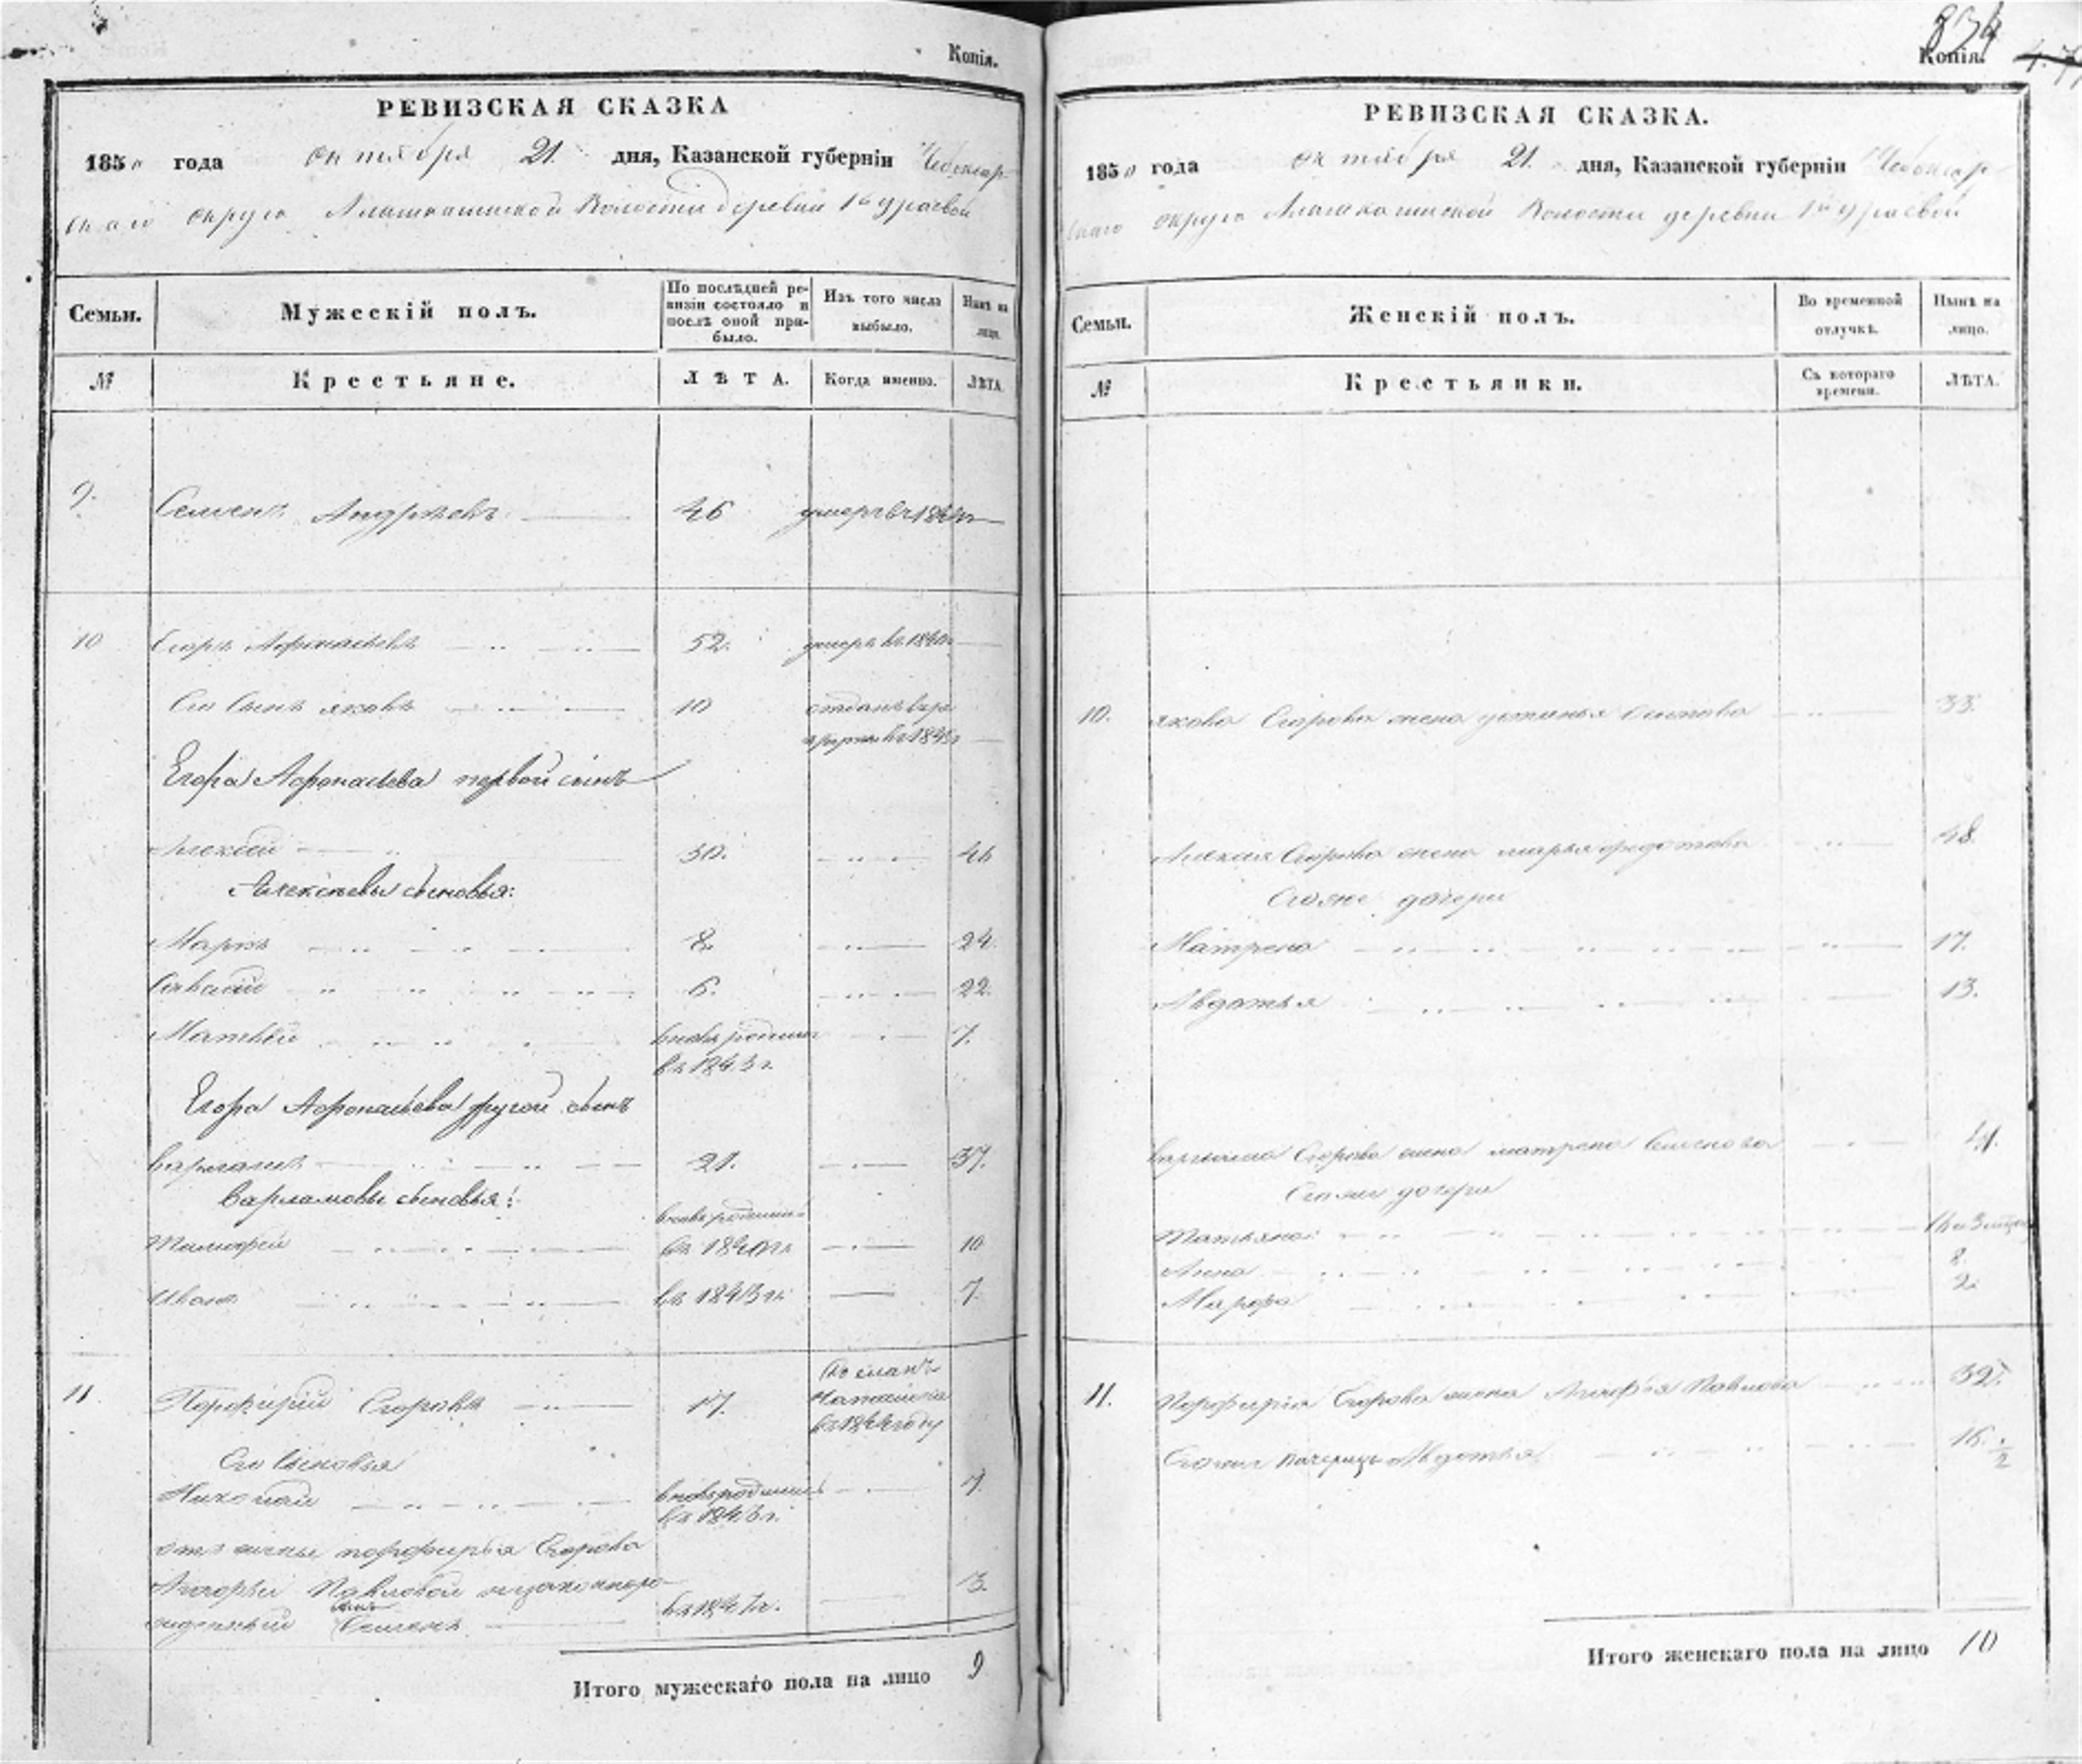 Копія.
РЕВИЗСКАЯ СКАЗКА
1850 года октября 21. дня, Казанской губерніи Чебоксар-
скаго округа Волости деревни
Семьи.
Мужескій полъ.
По послѣдней ре-
визіи состояло и
послѣ оной при-
было.
Изъ того числа
выбыло.
Нынѣ на
лицо.
№
Крестьяне.
ЛѢТА.
Когда именно.
ЛѢТА.
9. Семенъ Андрѣевъ 46 умеръ въ
10 Егоръ Афонасьевъ 52. умеръ въ
Его сынъ яковъ 10 отданъ въ
Егора Афонасьева первой сынъ
Алексѣй 30. 46
Алексѣевы сыновья:
Марко 8. 24.
6. 22.
Матвѣй вновь рожденъ 7.
въ 1843 г.
Егора Афонасьева другой сынъ
Варламъ 21. 37.
Варламовы сыновья:
Тимофей въ 1840 г. 10
Иванъ въ 1843 г. 7.
11. Порфирій Егоровъ 17. Посланъ
въ 1844 году
Его сыновья
Николай 7.
въ 1843 г.
отъ жены порфирья Егорова
Агафьи Павловой незаконно ро-
жденный сынъ Семенъ въ 1847 г. 3.
Итого мужескаго пола на лицо 9
834
Копія.
РЕВИЗСКАЯ СКАЗКА.
1850 года октября 21. дня, Казанской губерніи Чебоксар-
скаго округа Волости деревни
Семьи.
Женскій полъ.
Во временной
отлучкѣ.
Нынѣ на
лицо.
№
Крестьянки.
Съ котораго
времени.
ЛѢТА.
10. якова Егорова жена устинья Осипова 33.
Алексѣя Егорова жена марья федотова 48.
Егоже дочери
Матрена 17.
Авдотья 13.
Варлама Егорова жена матрена Семенова 41.
Егоже дочери
Татьяна
Анна 8.
Марфа 2.
11. Порфирія Егорова жена Агафья Павлова 39.
Егоже падчерица Авдотья 16. 1/2
Итого женскаго пола на лицо 10